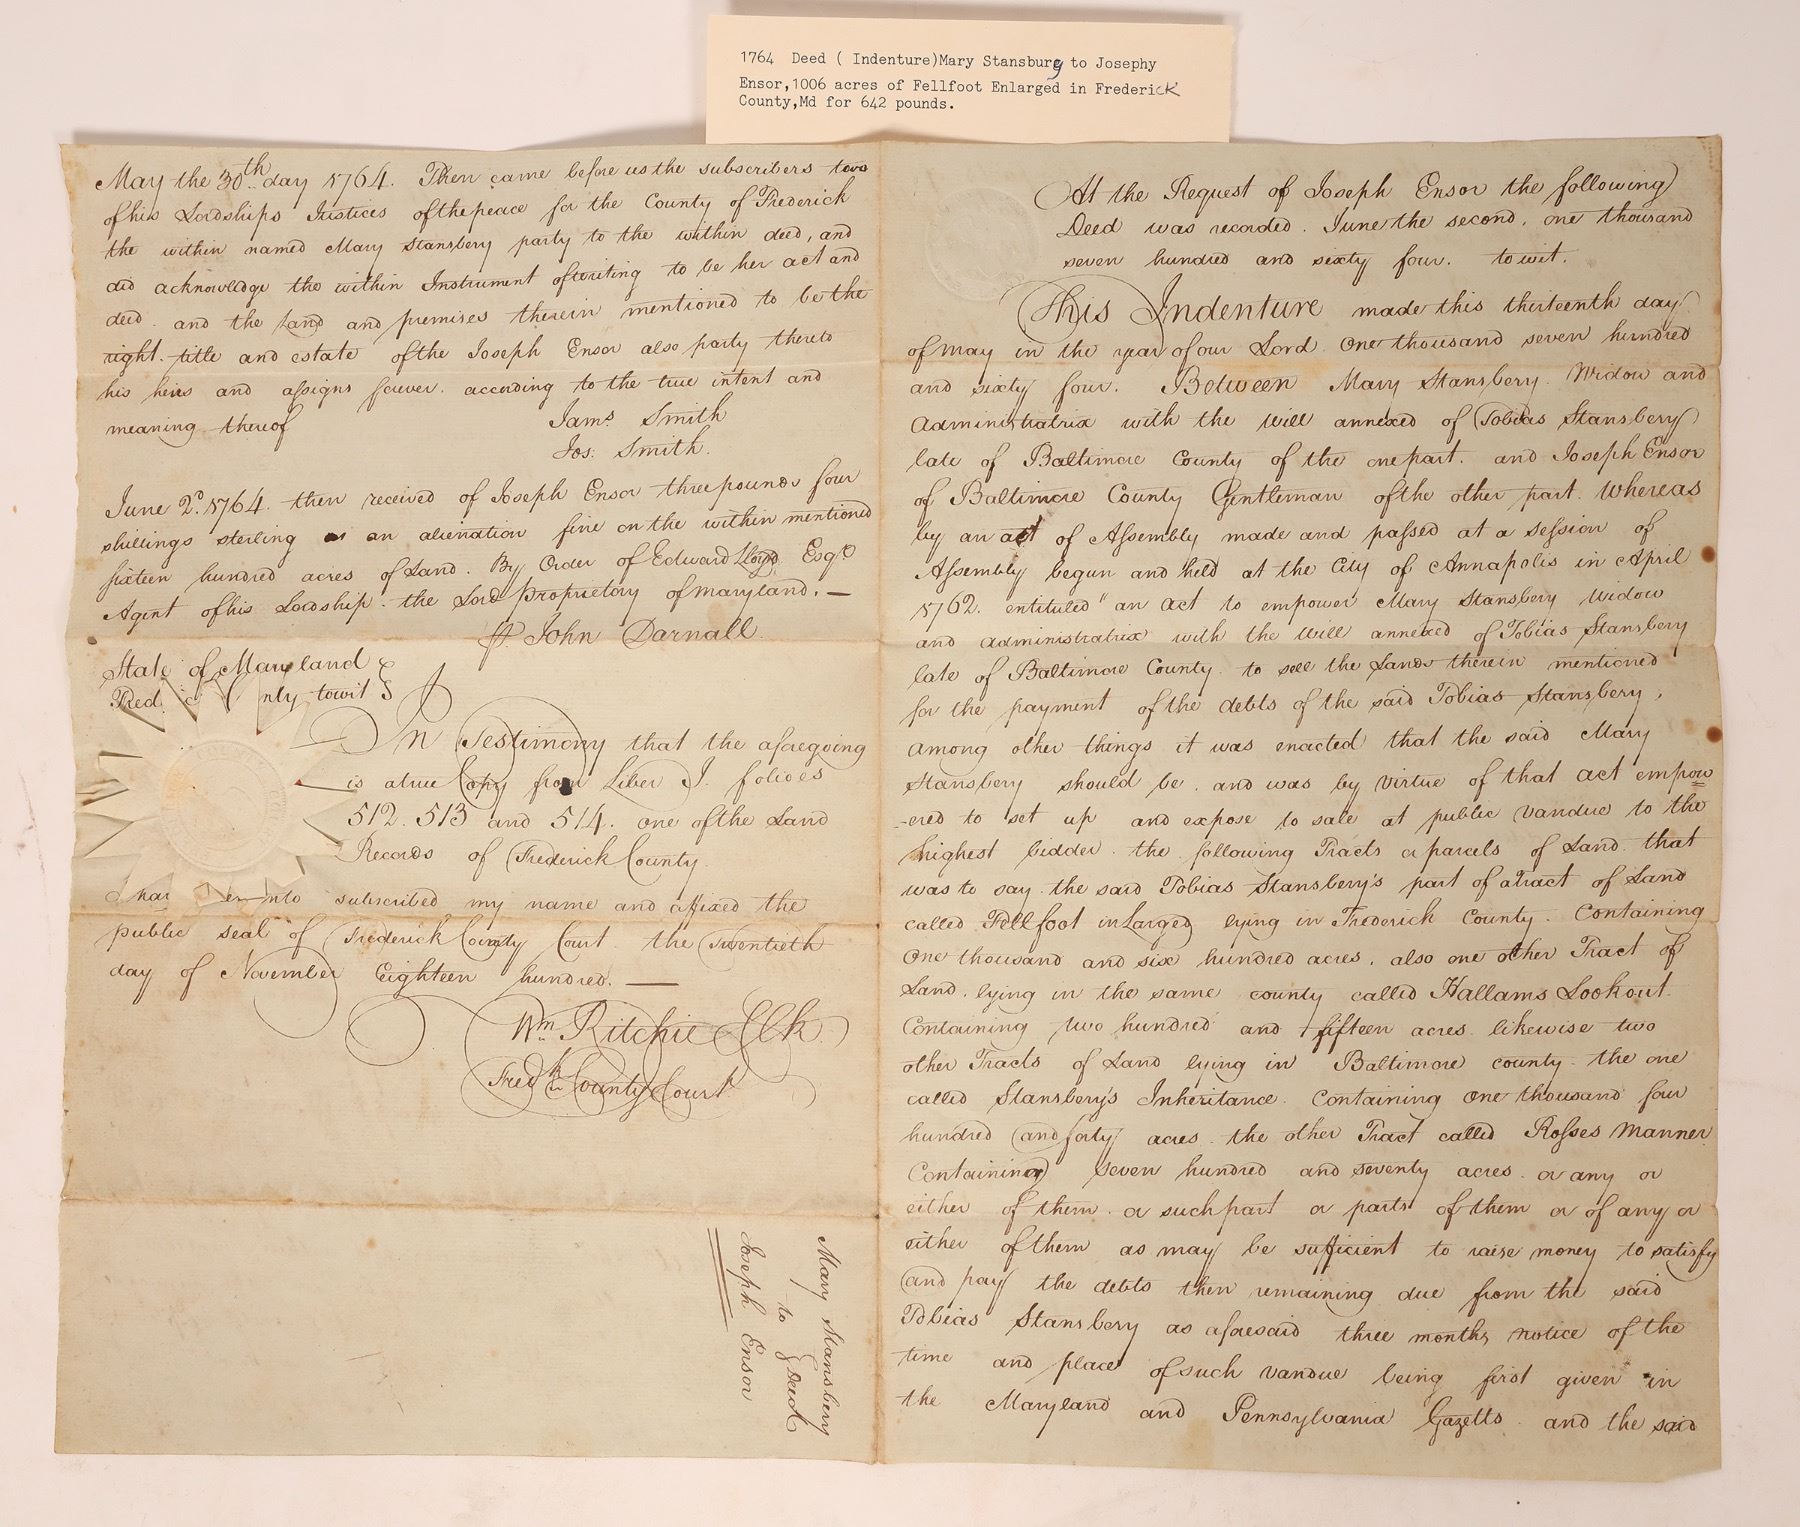 1764 Deed ( Indenture)Mary Stansbury to Josephy
Ensor,1006 acres of Fellfoot Enlarged in Frederick
County,Md for 642 pounds.
May the 30th day 1764. Then came before us the subscribers two
of his Lordships Justices of the peace for the County of Frederick
the within named Mary Stansbery party to the within deed, and
did acknowledge the within Instrument of writing to be her act and
deed. and the Land and premises therein mentioned to be the
right. title and estate of the Joseph Ensor also party thereto
his heirs and assigns forever. according to the true intent and
meaning thereof
Jams Smith
Jos: Smith.
June 2d. 1764. then received of Joseph Ensor three pounds four
shillings sterling as an alienation fine on the within mentioned
sixteen hundred acres of Land. By Order of Edward Lloyd Esqr
Agent of his Lordship the Lord Proprietory of maryland. —
John Darnall.
State of Maryland }
Fred. c nty towit }
In Testimony that the aforegoing
is a true Copy from Liber J. folioes
512. 513 and 514. one of the Land
Records of Frederick County.
I hav er unto subscribed my name and affixed the
public seal of Frederick County Court the Twentieth
day of November Eighteen hundred. —
Wm Ritchie Clk
Fredk County Court
Mary Stansbery
to } Deed
Joseph Ensor
At the Request of Joseph Ensor the following
Deed was recorded. June the second. one thousand
seven hundred and sixty four. towit.
This Indenture made this thirteenth day
of May in the year of our Lord One thousand seven hundred
and sixty four. Between Mary Stansbery Widow and
Administratrix with the Will annexed of Tobias Stansbery
late of Baltimore County of the one part. and Joseph Ensor
of Baltimore County Gentleman of the other part. Whereas
by an act of Assembly made and passed at a session of
Assembly begun and held at the City of Annapolis in April
1762. entituled "an act to empower Mary Stansbery Widow
and administratrix with the Will annexed of Tobias Stansbery
late of Baltimore County to sell the Lands therein mentioned
for the payment of the debts of the said Tobias Stansbery.
among other things it was enacted that the said Mary
Stansbery should be. and was by virtue of that act empow
-ered to set up and expose to sale at public vandue to the
highest bidder the following Tracts or parcels of Land that
was to say. the said Tobias Stansbery's part of a Tract of Land
called Fellfoot inLarged lying in Frederick County. Containing
One thousand and six hundred acres. also one other Tract of
Land. lying in the same county called Hallams Lookout.
Containing two hundred and fifteen acres. likewise two
other Tracts of Land lying in Baltimore county. the one
called Stansbery's Inheritance. Containing One thousand four
hundred and forty acres. the other Tract called Rosses Manner
Containing seven hundred and seventy acres. or any or
either of them. or such part or parts of them or of any or
either of them as may be sufficient to raise money to satisfy
and pay the debts then remaining due from the said
Tobias Stansbery as aforesaid three months notice of the
time and place of such vandue being first given in
the Maryland and Pennsylvania Gazetts. and the said